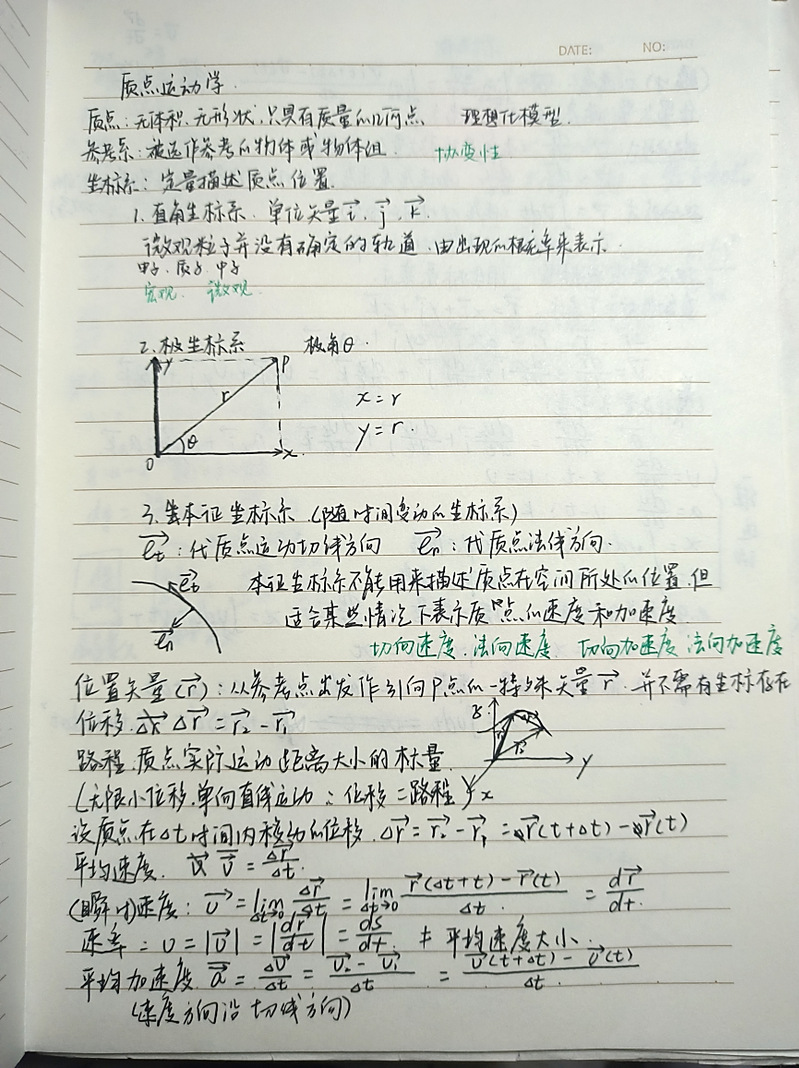 DATE: NO:
质点运动学
质点：无体积、无形状、只具有质量的几何点 理想化模型.
参考系：被选作参考的物体或物体组. 协变性
坐标系：定量描述质点位置.
1.直角坐标系. 单位矢量 i⃗, j⃗, k⃗.
微观粒子并没有确定的轨道.由出现的概率来表示.
电子.质子.中子
宏观. 微观.
2.极坐标系 极角θ.
y P
r x=r
θ y=r.
O x
3. 本征坐标系 (随时间变动的坐标系)
e⃗t：代质点运动切线方向 e⃗n：代质点法线方向.
e⃗t 本征坐标系不能用来描述质点在空间所处的位置.但
适合某些情况下表示质点的速度和加速度
e⃗n
切向速度.法向速度 切向加速度 法向加速度
位置矢量(r⃗)：从参考点出发作引向P点的一特殊矢量r⃗.并不需有坐标存在
位移. Δr⃗ = r⃗2 - r⃗1
z y x
路程.质点实际运动距离大小的标量.
(无限小位移.单向直线运动：位移=路程)
设质点在Δt时间内移动的位移. Δr⃗ = r⃗2 - r⃗1 = r⃗(t+Δt) - r⃗(t)
平均速度. v⃗ = Δr⃗/Δt.
(瞬时)速度：v⃗ = lim Δt→0 Δr⃗/Δt = lim Δt→0 (r⃗(Δt+t) - r⃗(t))/Δt = dr⃗/dt.
速率：v = |v⃗| = |dr⃗/dt| = ds/dt. ≠ 平均速度大小.
平均加速度 a⃗ = Δv⃗/Δt = (v⃗2 - v⃗1)/Δt = (v⃗(t+Δt) - v⃗(t))/Δt.
(速度方向沿切线方向)